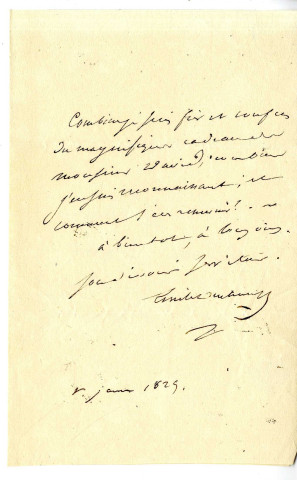 Combien je suis fier et confus
du magnifique cadeau de
monsieur combien
j'en suis reconnaissant; et
comment s'en remercier? -
à bientôt, à toujours.
Son dévoué Serviteur.
Emile
janvier 1829.